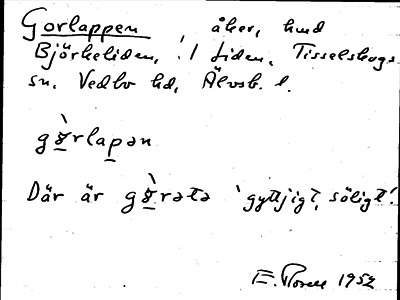 Gorlappen, åker, hmd
Björkeliden, Liden, Tisselskogs
sn, Vedbo hd, Älvsb. l.
Där är gö̀rətə 'gyttjigt, söligt'.
1952